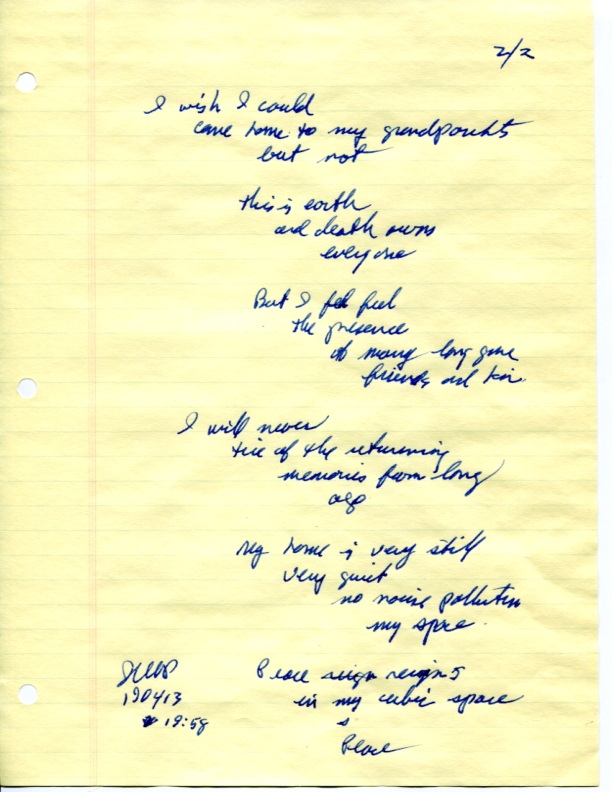 2/2
I wish I could
come home to my grandparents
but not
this is earth
and death owns
everyone
But I fel feel
the presence
of many long gone
friends and kin.
I will never
tire of the returning
memories from long
ago
my home is very still
very quiet
no noise pollution
my space.
Peace reign reigns
in my cubic space
Peace
190413
19:58